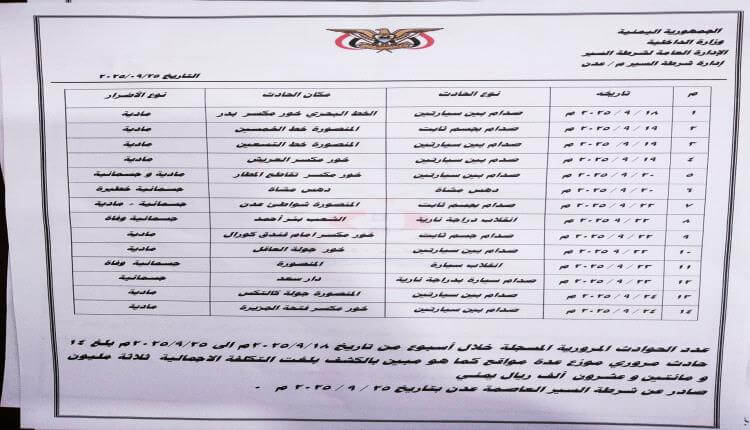 الجمهورية اليمنية
وزارة الداخلية
الإدارة العامة لشرطة السير
إدارة شرطة السير م/ عدن
التاريخ ٢٠٢٥/٠٩/٢٥
م تاريخه نوع الحادث مكان الحادث نوع الأضرار
١ ١٨ / ٩ / ٢٠٢٥ م صدام بين سيارتين الخط البحري خور مكسر بدر مادية
٢ ١٩ / ٩ / ٢٠٢٥ م صدام بجسم ثابت المنصورة خط الخمسين مادية
٣ ١٩ / ٩ / ٢٠٢٥ م صدام بين سيارتين المنصورة خط التسعين مادية
٤ ١٩ / ٩ / ٢٠٢٥ م صدام بين سيارتين خور مكسر العريش مادية
٥ ٢٠ / ٩ / ٢٠٢٥ م صدام بين سيارتين خور مكسر تقاطع المطار مادية و جسمانية
٦ ٢٠ / ٩ / ٢٠٢٥ م دهس مشاة دهس مشاة جسمانية خطيرة
٧ ٢٢ / ٩ / ٢٠٢٥ م صدام بجسم ثابت المنصورة شواطئ عدن جسمانية - مادية
٨ ٢٢ / ٩ ٢٠٢٥ م انقلاب دراجة نارية الشعب بئر أحمد جسمانية وفاة
٩ ٢٢ / ٩ / ٢٠٢٥ م صدام جسم ثابت خور مكسر امام فندق كورال مادية
١٠ ٢٢ / ٩ ٢٠٢٥ م صدام بين سيارتين خور جولة العاقل مادية
١١ ٢٣ / ٩ / ٢٠٢٥ م انقلاب سيارة المنصورة جسمانية وفاة
١٢ ٢٣ / ٩ / ٢٠٢٥ م صدام سيارة بدراجة نارية دار سعد جسمانية
١٣ ٢٤ / ٩ / ٢٠٢٥ م صدام بين سيارتين المنصورة جولة كالتكس مادية
١٤ ٢٤ / ٩ / ٢٠٢٥ م صدام بين سيارتين خور مكسر فتحة الجزيرة مادية
عدد الحوادث المرورية المسجلة خلال أسبوع من تاريخ ٢٠٢٥/٩/١٨م الى ٢٠٢٥/٩/٢٥م بلغ ١٤
حادث مروري موزع عدة مواقع كما هو مبين بالكشف بلغت التكلفة الاجمالية ثلاثة مليون
و مائتين و عشرون ألف ريال يمني
صادر عن شرطة السير العاصمة عدن بتاريخ ٢٥ / ٩ / ٢٠٢٥ م -